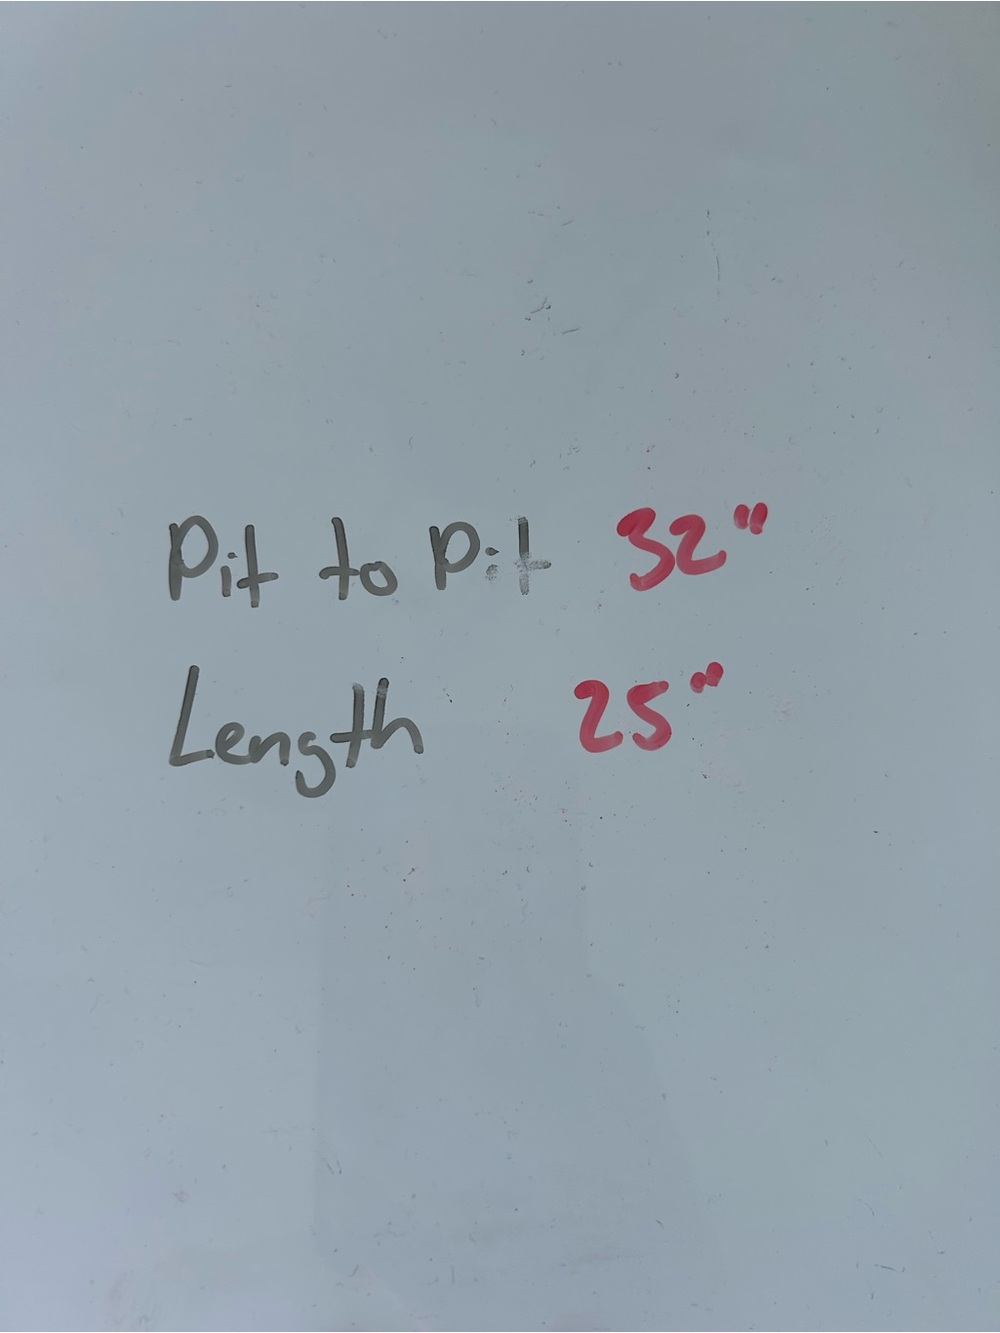 Pit to Pit 32"
Length 25"